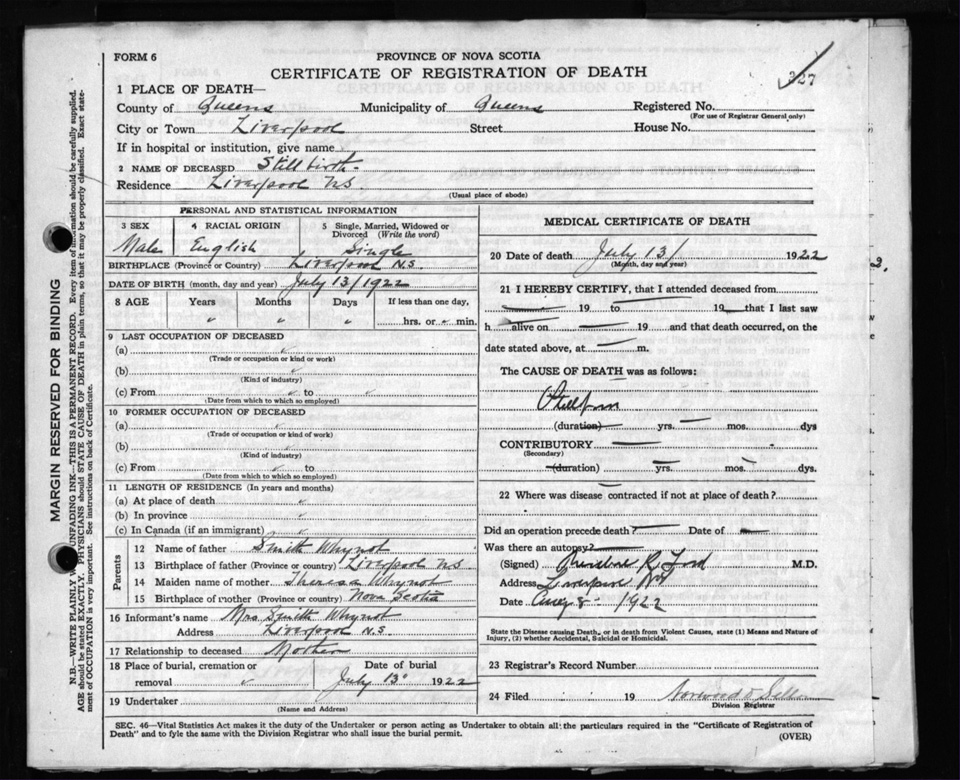 FORM 6
PROVINCE OF NOVA SCOTIA
CERTIFICATE OF REGISTRATION OF DEATH
327
1 PLACE OF DEATH—
County of Queens Municipality of Queens Registered No.
(For use of Registrar General only)
City or Town Liverpool Street House No.
If in hospital or institution, give name
2 NAME OF DECEASED Still birth.
Residence Liverpool N.S.
(Usual place of abode)
PERSONAL AND STATISTICAL INFORMATION
3 SEX 4 RACIAL ORIGIN 5 Single, Married, Widowed or Divorced (Write the word)
Male English Single
BIRTHPLACE (Province or Country) Liverpool N.S.
DATE OF BIRTH (month, day and year) July 13/1922
8 AGE Years Months Days If less than one day,
" " " hrs. or min.
9 LAST OCCUPATION OF DECEASED
(a)
(Trade or occupation or kind or work)
(b)
(Kind of industry)
(c) From to
(Date from which to which so employed)
10 FORMER OCCUPATION OF DECEASED
(a)
(Trade or occupation or kind of work)
(b)
(Kind of industry)
(c) From to
(Date from which to which so employed)
11 LENGTH OF RESIDENCE (In years and months)
(a) At place of death
(b) In province
(c) In Canada (if an immigrant)
Parents
12 Name of father Smith Whynot
13 Birthplace of father (Province or country) Liverpool N.S.
14 Maiden name of mother Theresa Whynot
15 Birthplace of mother (Province or country) Nova Scotia
16 Informant's name Mrs Smith Whynot
Address Liverpool N.S
17 Relationship to deceased Mother
18 Place of burial, cremation or removal Date of burial
July 13 1922
19 Undertaker
(Name and Address)
MEDICAL CERTIFICATE OF DEATH
20 Date of death July 13/ 1922
(Month, day and year)
21 I HEREBY CERTIFY, that I attended deceased from
19 to 19 that I last saw
h alive on 19 and that death occurred, on the
date stated above, at m.
The CAUSE OF DEATH was as follows:
(duration) yrs. mos. dys
CONTRIBUTORY
(Secondary)
(duration) yrs. mos. dys.
22 Where was disease contracted if not at place of death?
Did an operation precede death? Date of
Was there an autopsy?
(Signed) R. Ford M.D.
Address Liverpool NS
Date Aug 8 - 1922
State the Disease causing Death, or in death from Violent Causes, state (1) Means and Nature of
Injury, (2) whether Accidental, Suicidal or Homicidal.
23 Registrar's Record Number
24 Filed 19
Division Registrar
SEC. 46—Vital Statistics Act makes it the duty of the Undertaker or person acting as Undertaker to obtain all the particulars required in the "Certificate of Registration of
Death" and to fyle the same with the Division Registrar who shall issue the burial permit.
(OVER)
MARGIN RESERVED FOR BINDING
N.B.—WRITE PLAINLY UNFADING INK—THIS IS A PERMANENT RECORD. Every item of information should be carefully supplied.
AGE should be stated EXACTLY. PHYSICIANS should STATE CAUSE OF DEATH in plain terms, so that it may be properly classified. Exact state-
ment of OCCUPATION is very important. See instructions on back of Certificate.